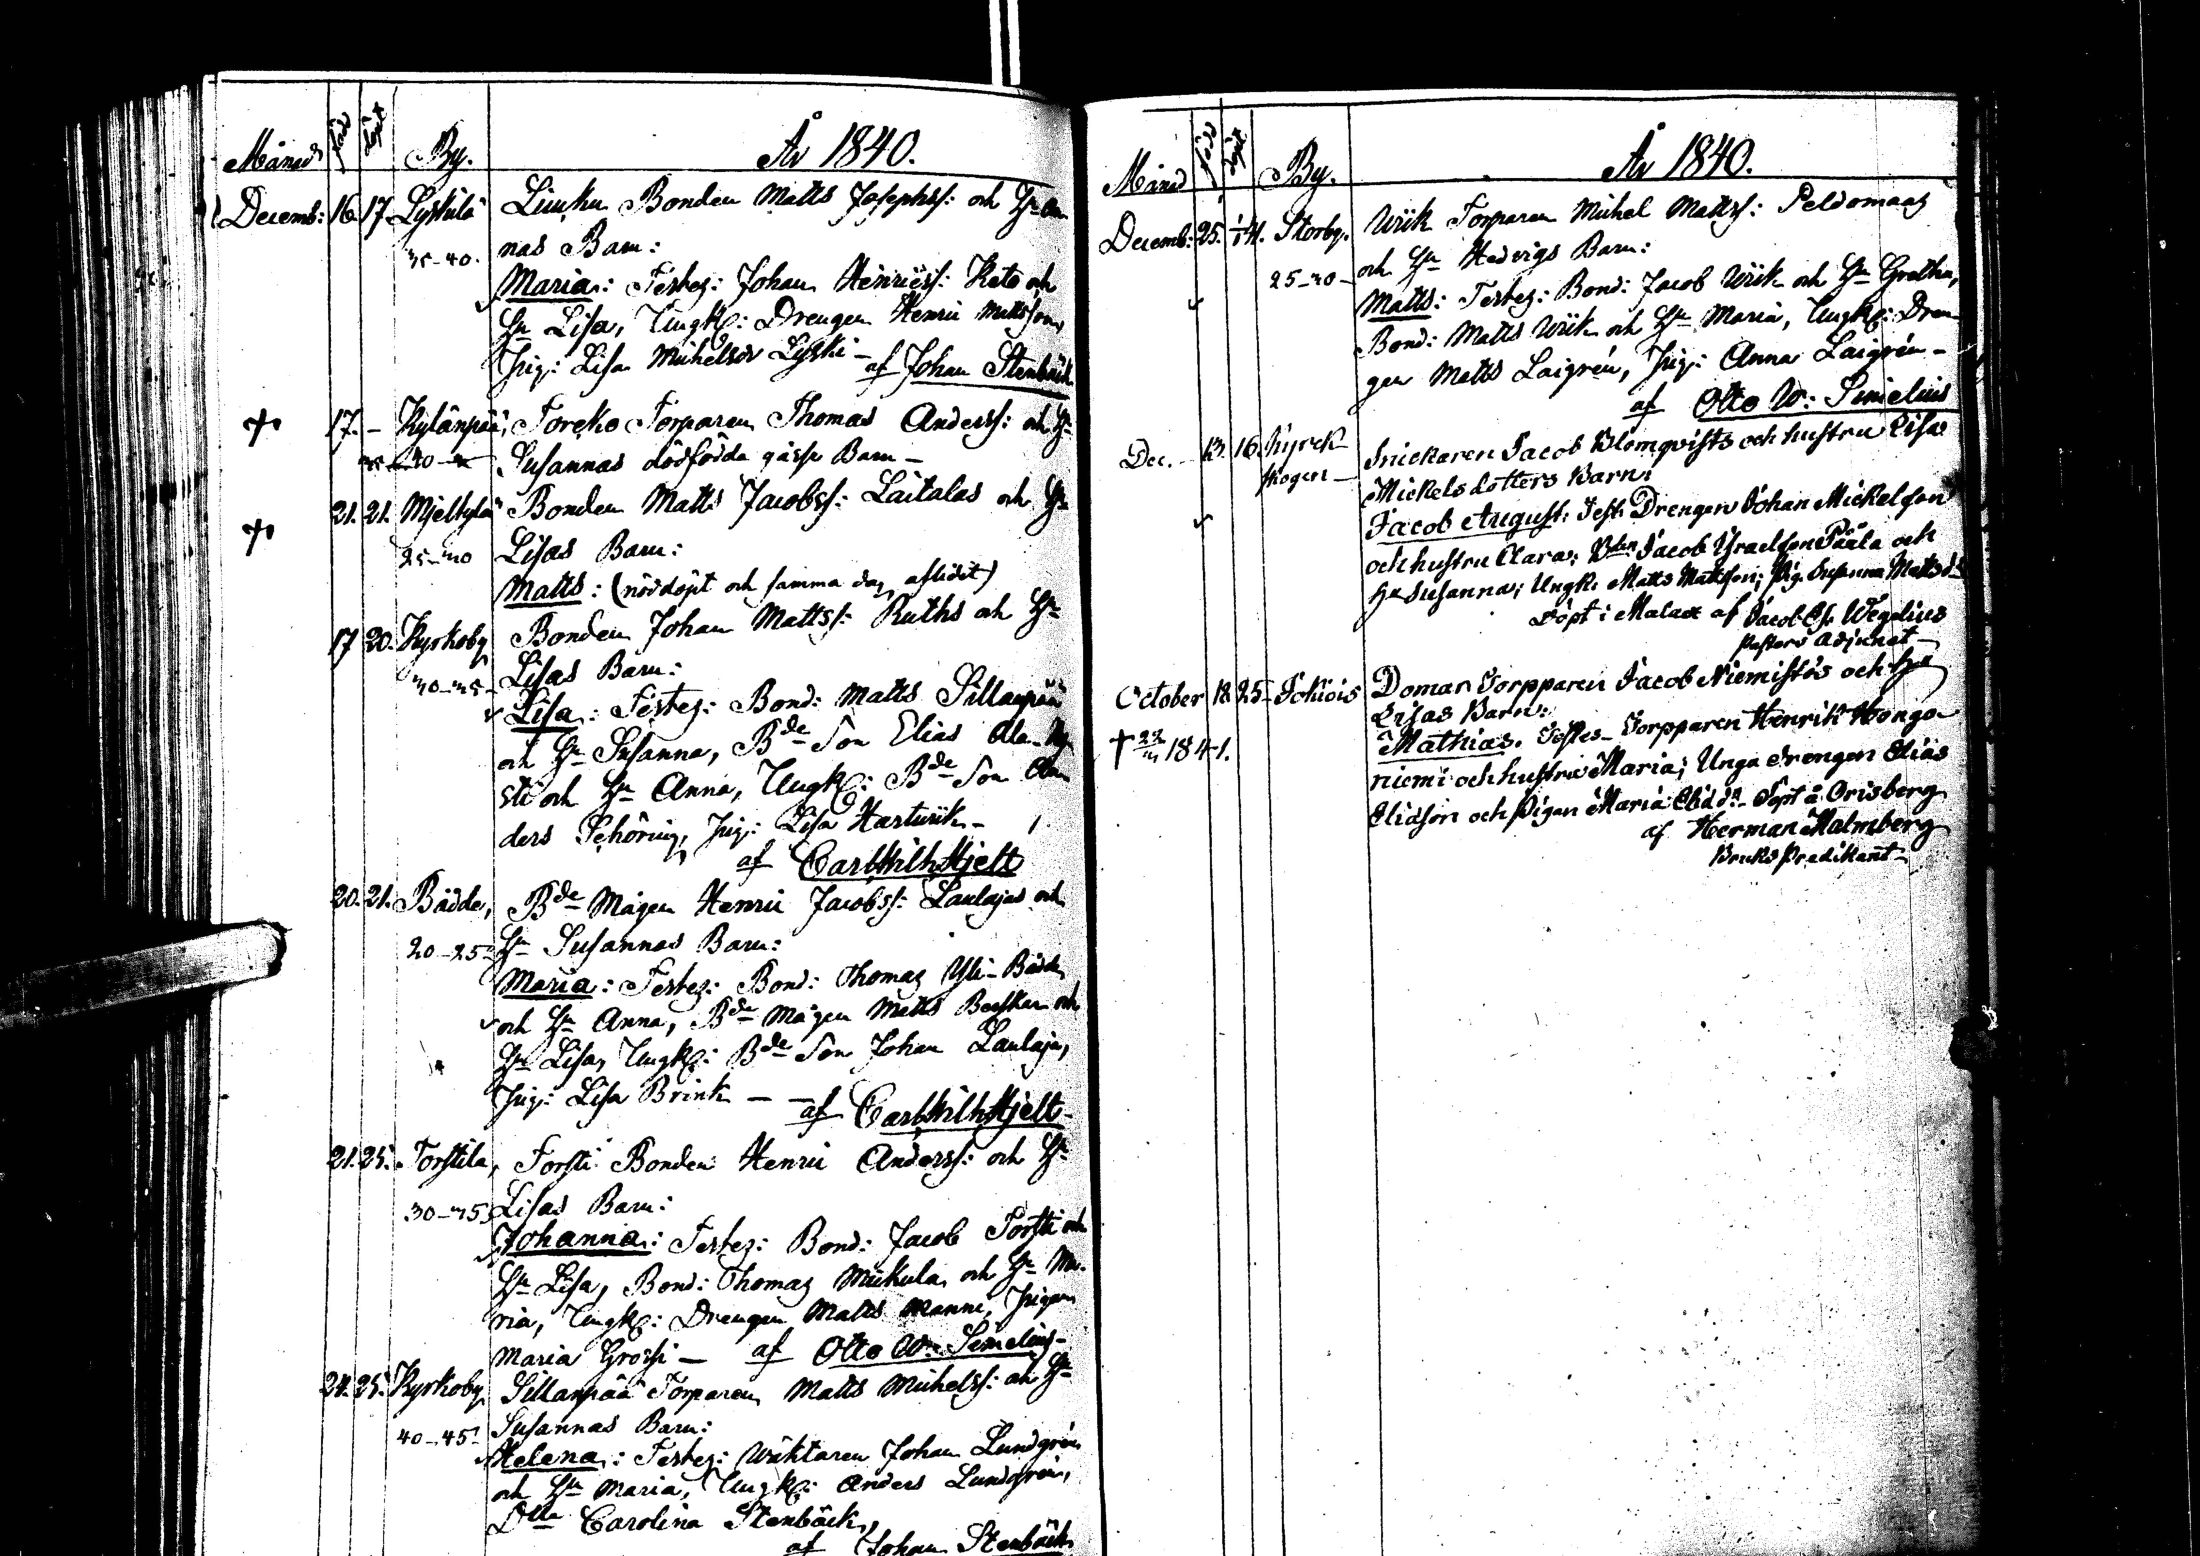 Månad född döpt By. År 1840.
Decemb: 16. 17. Lyskilä Liuku Bonden Matts Josephss: och Hu An
35-40. nas Barn:
Maria: Testes: Johan Henricss: Keto och
Hu Lisa, Ungk: Drengen Henric Mattsson,
Pig: Lisa Michelsdr Lyski - af Johan Stenbäck
17. - Kylänpää, Torcko Torparen Thomas Anderss: och Hu
35-40- Susannas dödfödda gåsse Barn -
21. 21. Mjeltylä Bonden Matts Jacobss: Laitalas och Hu
25-30 Lisas Barn:
Matts: (nöddöpt och samma dag aflidit)
17 20. Kyrkoby Bonden Johan Mattss: Ruths och Hu
30-35- Lisas Barn:
Lisa: Testes: Bond: Matts Sillanpää
och Hu Susanna, Bde Son Elias Ala-
sti och Hu Anna, Ungk: Bde Son An
ders Schöring, Pig: Lisa Hartwik -
af Carl Wilh Hjelt
20. 21. Bädde, Bde Mågen Henric Jacobss: Laulajas och
20-25- Hu Susannas Barn:
Maria: Testes: Bond: Thomas Yli-Bädde
och Hu Anna, Bde Mågen Matts och
Hu Lisa, Ungk: Bde Son Johan Laulaja,
Pig: Lisa Brink - - af Carl Wilh Hjelt -
21. 25. Torstila, Torsti Bonden Henric Anderss: och Hu
30-35, Lisas Barn:
Johanna: Testes: Bond: Jacob Torsti och
Hu Lisa, Bond: Thomas Mickula och Hu Ma-
ria, Ungk: Drengen Matts Manni, Pigan
Maria Grossi - af Otto W: Simelius -
24. 25. Kyrkoby Sillanpää Torparen Matts Michelss: och Hu
40-45- Susannas Barn:
Helena: Testes: Wäktaren Johan Lundgrén
och Hu Maria, Ungk: Anders Lundgrén,
Dlle Carolina Stenbäck,
af Johan Stenbäck
Månad född döpt By. År 1840.
Decemb: 25. 1/1 41. Storby. Wiik Torparen Michel Mattss: Peldomaas
25-30- och Hu Hedvigs Barn:
Matts: Testes: Bond: Jacob Wiik och Hu Gretha,
Bond: Matts Wiik och Hu Maria, Ungk: Dren
gen Matts Laigrén, Pig: Anna Laigrén -
af Otto W: Simelius
Dec. - 13. 16. Kyrck- Snickaren Jacob Blomqvists och hustru Lisas
skogen - Mickelsdotters Barn:
Jacob August: Test: Drengen Johan Mickelson
och hustru Clara; Bden Jacob Israelson Påula och
Hu Susanna; Ungk: Matts Mattson; Pig. Susanna Mattsdr
Döpt i Malax af Jacob Wegelius
Pastors Adjunct -
October 18. 25 - Tohiois Domar Torpparen Jacob Niemistös och Hu
Lisas Barn:
† 1841. Mathias. Testes - Torpparen Henrik Hongo
niemi och hustru Maria; Unga drengen Elias
Eliason och Pigan Maria - Döpt å Orisberg
af Herman Malmberg
Bruks Predikant -